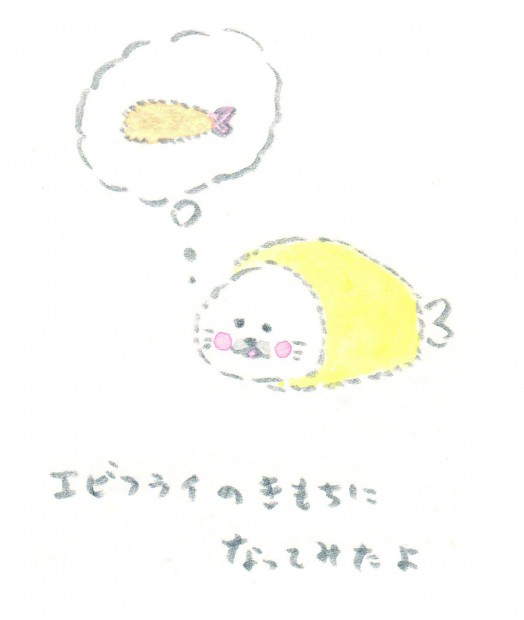 エビフライのきもちに
なってみたよ